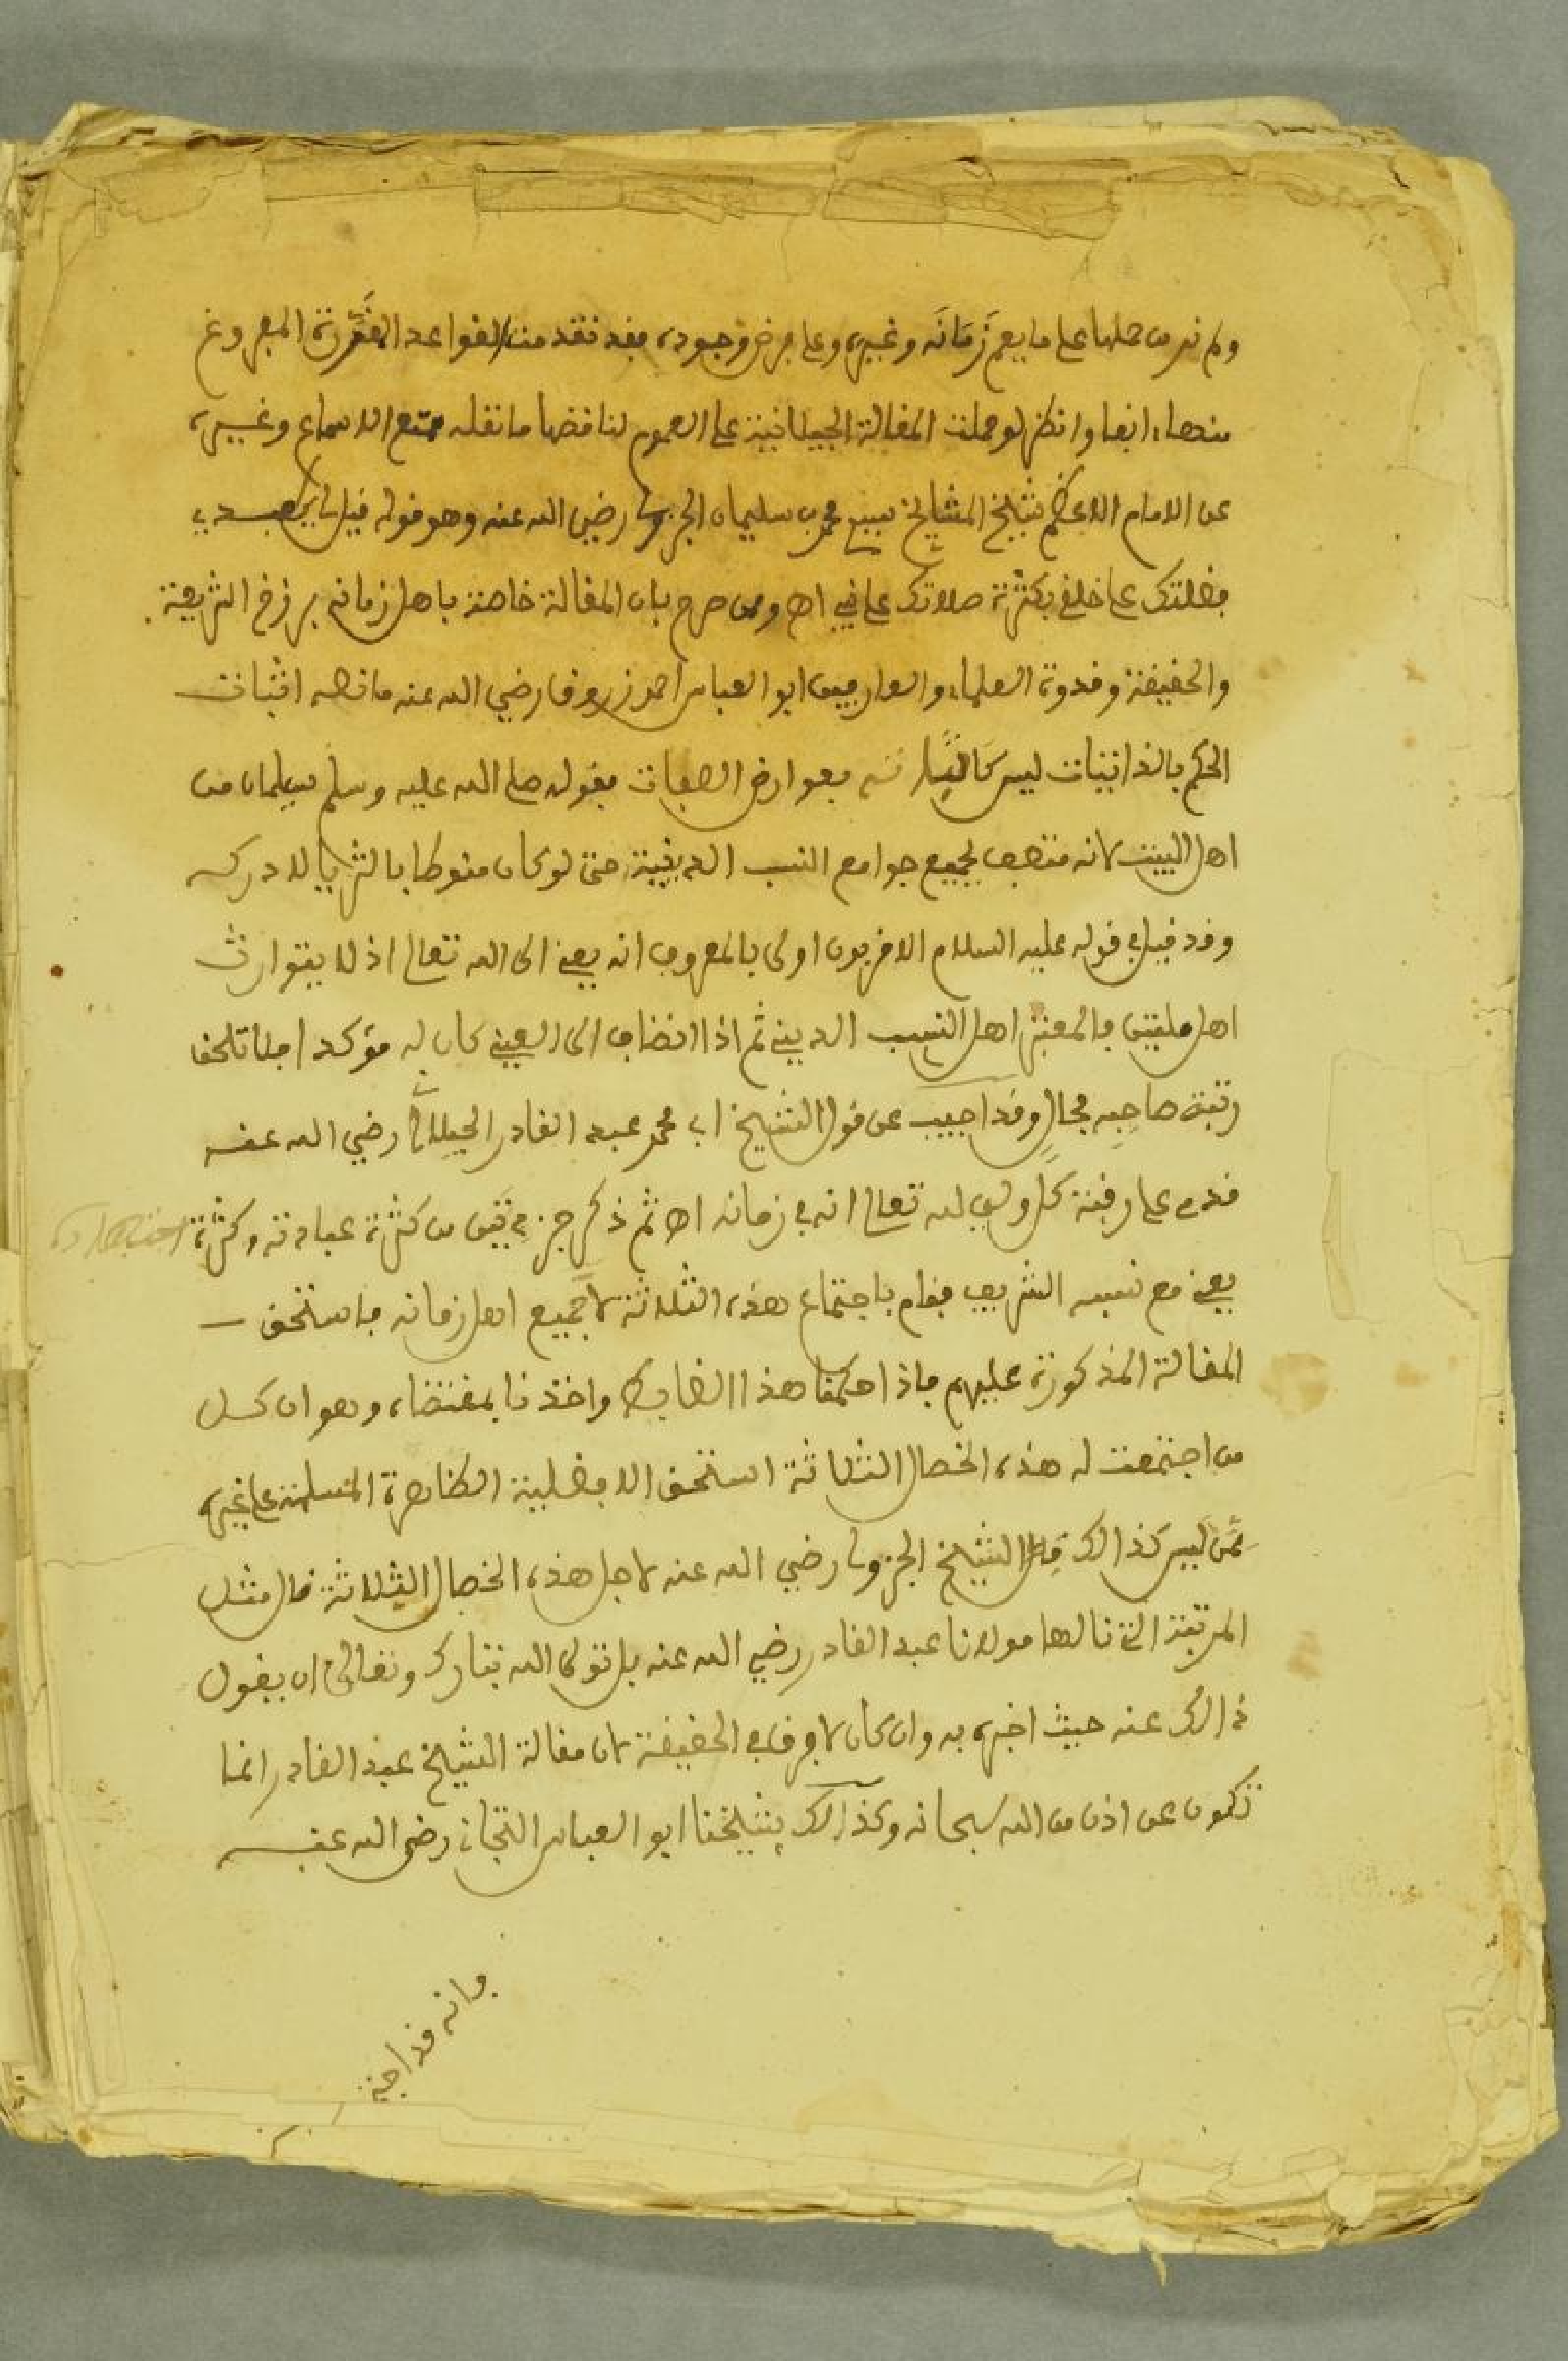 ولم نر من حملها على ما يعم زَمَانَه وغيره وعلى فرض وجوده فقد تقدمت القواعد المقَرَّرة المفروغ
منها ءانفا وانظر لو حملت المقالة الجيلانية على العموم لناقضها ما نقله ممتع الاسماع وغيره
عن الامام الاعظم شيخ المشايخ سيدي محمد بن سليمان الجزولي رضي الله عنه وهو قوله قيل لي يا عبدي
فضلتك على خلقي بكثرة صلاتك على نبيي اه وممن صرح بان المقالة خاصة باهل زمانه برزخ الشريعة
والحقيقة وقدوة العلماء والعارفين ابو العباس احمد زروق رضي الله عنه ما نصه اثبات
الحكم بالذاتيات ليس كَاثباته بعوارض الصفات فقوله صلى الله عليه وسلم سلمان من
اهل البيت لانه متصف بجميع جوامع النسب الدينية حتى لو كان منوطا بالثريا لادركه
وقد قيل في قوله عليه السلام الاقربون اولى بالمعروف انه يعني الى الله تعالى اذ لا يتوارث
اهل ملتين فالمعتبر اهل النسب الديني ثم اذا انضاف الى العيني كان له مؤكدا فلا تلحق
رتبة صاحبه بحال وقد اجيب عن قول الشيخ ابي محمد عبد القادر الجيلاني رضي الله عنه
قدمي على رقبة كل ولي لله تعالى انه في زمانه اه ثم ذكر جزءيتين من كثرة عبادته وكثرة
يعني مع نسبه الشريف فقام باجتماع هذه الثلاثة لا جميع اهل زمانه فاستحق
المقالة المذكورة عليهم فاذا احكمنا هذا الضابط واخذنا بمقتضاه وهو ان كل
من اجتمعت له هذه الخصال الثلاثة استحق الافضلية الظاهرة المسلمة على غيره
ممَّن ليس كذالك قلنا الشيخ الجزولي رضي الله عنه لاجل هذه الخصال الثلاثة نال مثل
المرتبة التي نالها مولانا عبد القادر رضي الله عنه بل تولى الله تبارك وتعالى ان يقول
ذالك عنه حيث اخبره به وان كان لا فرق في الحقيقة لان مقالة الشيخ عبد القادر انما
تكون عن اذن من الله سبحانه وكذالك شيخنا ابو العباس التجاني رضي الله عنه
فانه قد اجتمـ